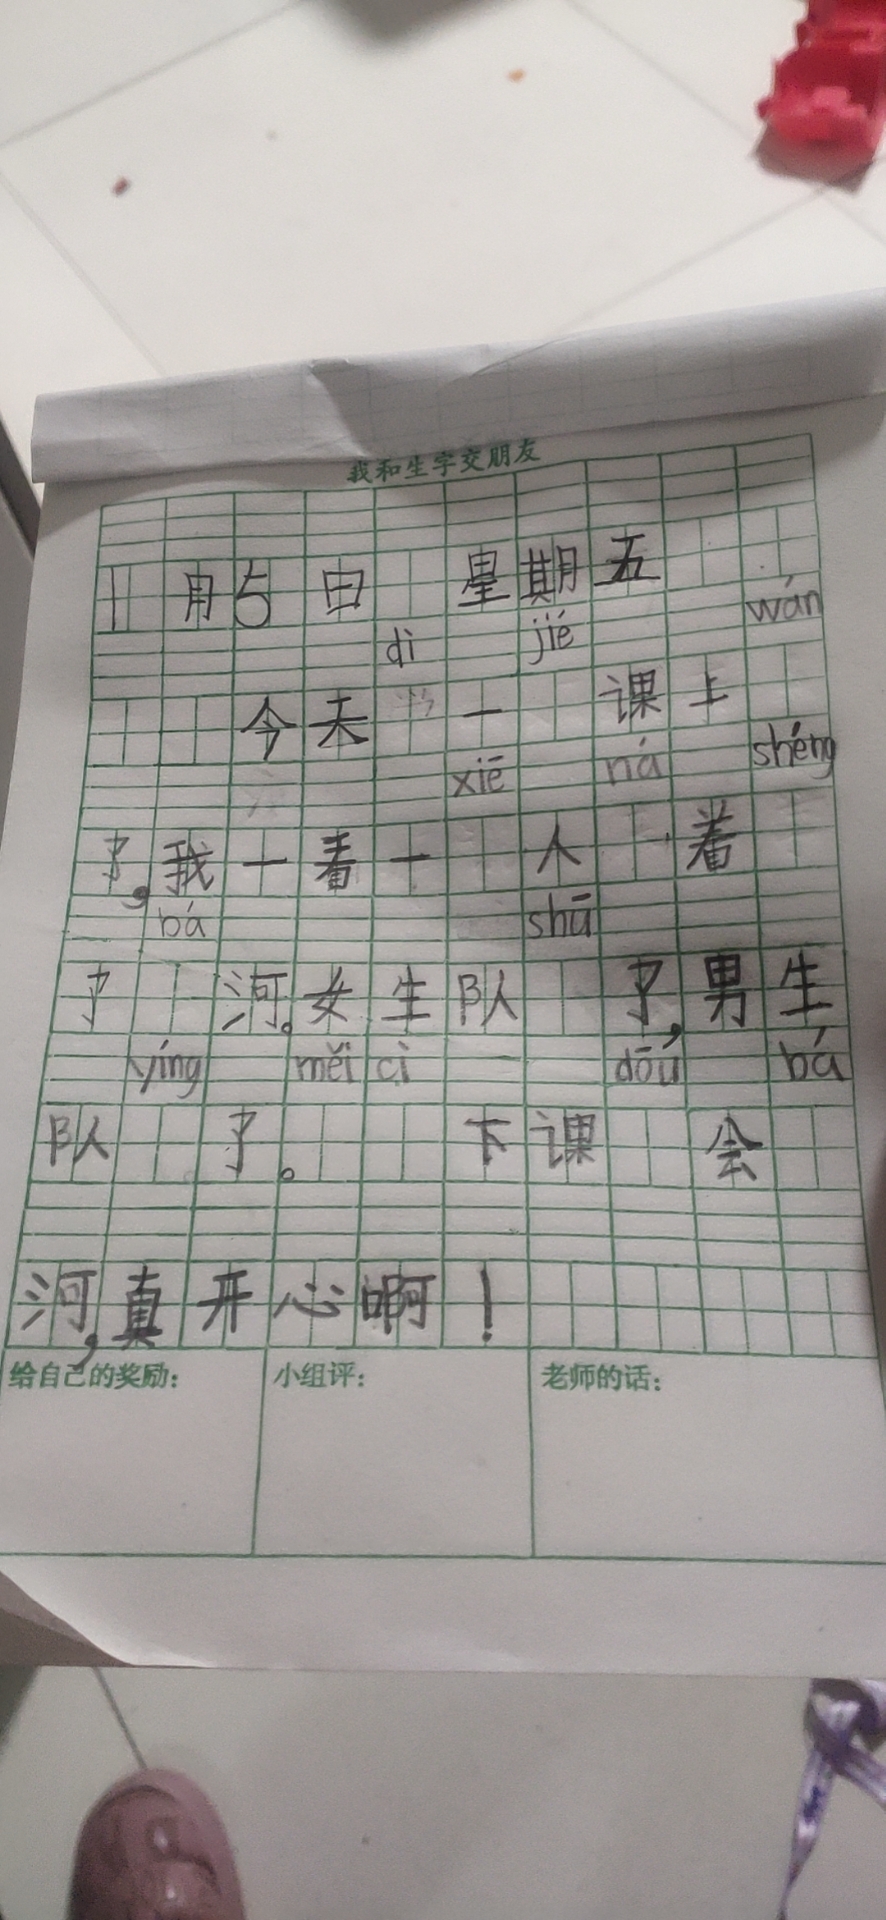 我和生字交朋友
1月5日 星期五
dì jié wán
今天 一 课上
xiē ná shéng
了,我一看一 人 着
bá shū
了 河。女生队 了,男生
yíng měi cì dōu bá
队 了。 下课 会
河,真开心啊!
给自己的奖励: 小组评: 老师的话: